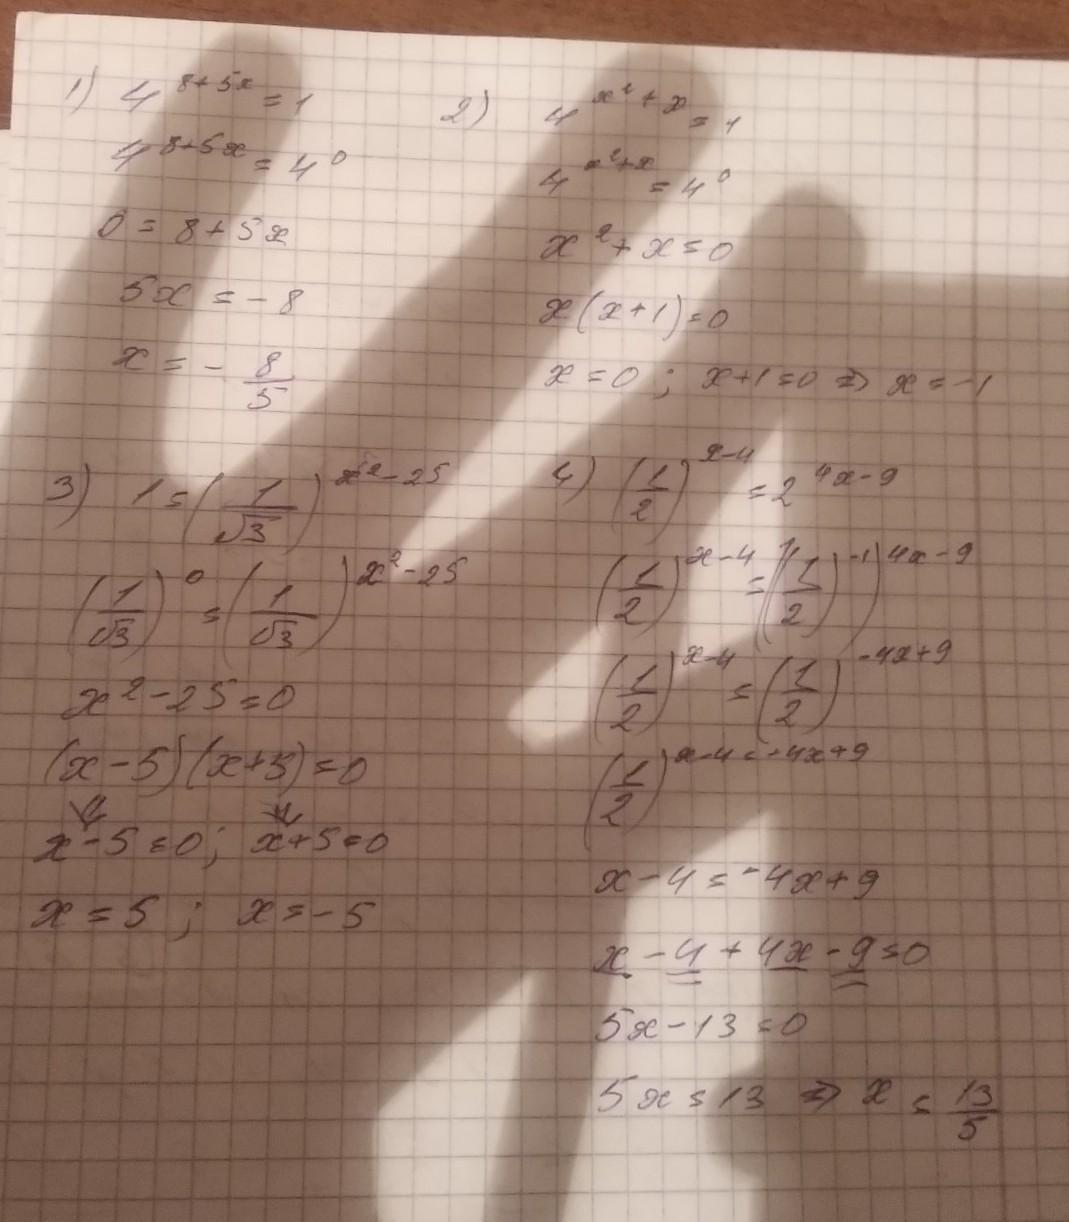 1) 4^{8+5x} = 1
4^{8+5x} = 4^0
0 = 8+5x
5x = -8
x = - 8/5
2) 4^{x^2+x} = 1
4^{x^2+x} = 4^0
x^2+x=0
x(x+1)=0
x=0; x+1=0 => x=-1
3) 1=(1/√3)^{x^2-25}
(1/√3)^0=(1/√3)^{x^2-25}
x^2-25=0
(x-5)(x+5)=0
x-5=0; x+5=0
x=5; x=-5
4) (1/2)^{x-4}=2^{4x-9}
(1/2)^{x-4}=((1/2)^{-1})^{4x-9}
(1/2)^{x-4}=(1/2)^{-4x+9}
(1/2)^{x-4=-4x+9}
x-4=-4x+9
x-4+4x-9=0
5x-13=0
5x=13 => x=13/5